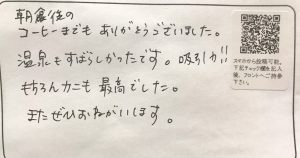 朝食後の
コーヒーまでもありがとうございました。
温泉もすばらしかったです。吸引力!!
もちろんカニも最高でした。
またぜひおねがいします。
スマホから投稿可能。
下記チェック欄を記入
後、フロントへご持参
下さい。